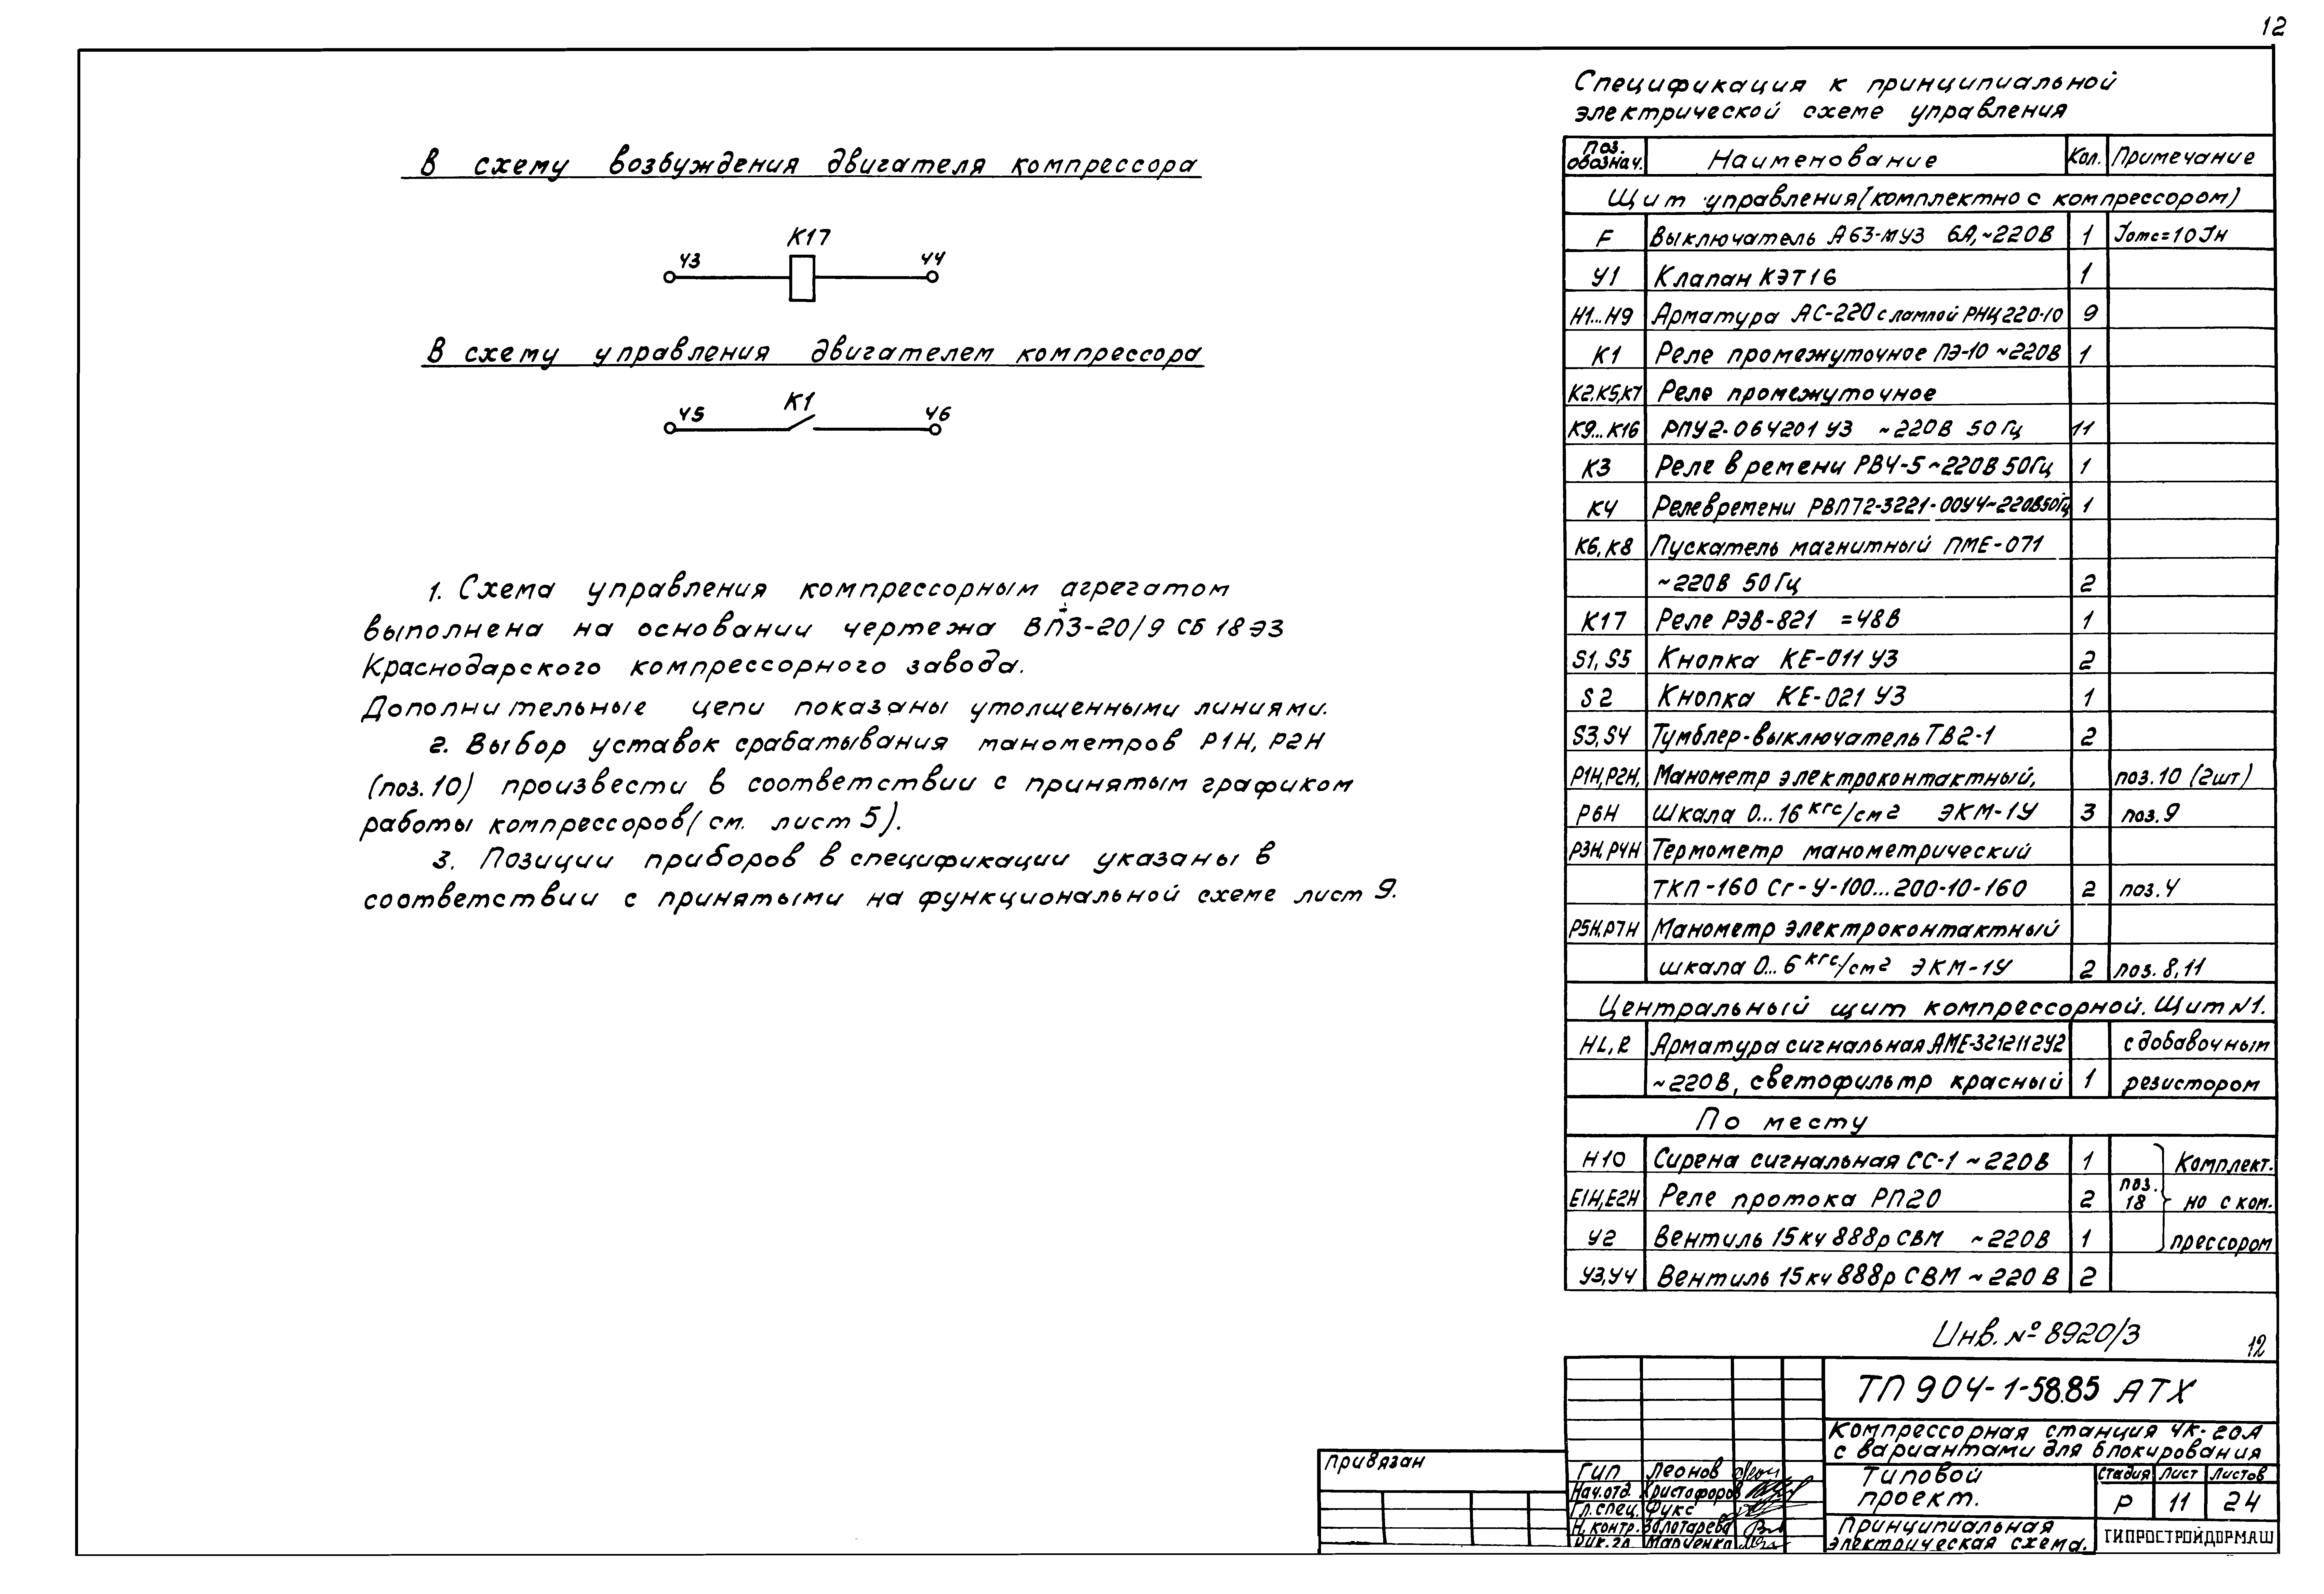 12
В схему возбуждения двигателя компрессора
К17
43 44
В схему управления двигателем компрессора
К1
45 46
1. Схема управления компрессорным агрегатом
выполнена на основании чертежа ВП3-20/9 СБ 18 Э3
Краснодарского компрессорного завода.
Дополнительные цепи показаны утолщенными линиями.
2. Выбор уставок срабатывания манометров Р1Н, Р2Н
(поз.10) произвести в соответствии с принятым графиком
работы компрессоров (см. лист 5).
3. Позиции приборов в спецификации указаны в
соответствии с принятыми на функциональной схеме лист 9.
Спецификация к принципиальной
электрической схеме управления
поз. обознач. Наименование Кол. Примечание
Щит управления (комплектно с компрессором)
F Выключатель А63-МУ3 6А, ~220В 1 Jотс=10Jн
У1 Клапан КЭТ16 1
Н1...Н9 Арматура АС-220 с лампой РНЦ 220-10 9
К1 Реле промежуточное ПЭ-10 ~220В 1
К2,К5,К7 Реле промежуточное
К9...К16 РПУ2-064201 У3 ~220В 50Гц 11
К3 Реле времени РВ4-5 ~220В 50Гц 1
К4 Реле времени РВП72-3221-00У4 ~220В 50Гц 1
К6, К8 Пускатель магнитный ПМЕ-071
~220В 50Гц 2
К17 Реле РЭВ-821 =48В 1
S1, S5 Кнопка КЕ-011 У3 2
S2 Кнопка КЕ-021 У3 1
S3,S4 Тумблер-выключатель ТВ2-1 2
Р1Н,Р2Н, Манометр электроконтактный, поз.10 (2шт)
Р6Н шкала 0...16 кгс/см2 ЭКМ-1У 3 поз.9
Р3Н,Р4Н Термометр манометрический
ТКП-160 Сг-У-100...200-10-160 2 поз.4
Р5Н,Р7Н Манометр электроконтактный
шкала 0...6 кгс/см2 ЭКМ-1У 2 поз. 8,11
Центральный щит компрессорной. Щит N1.
HL,R Арматура сигнальная АМЕ-321211 2У2 с добавочным
~220В, светофильтр красный 1 резистором
По месту
Н10 Сирена сигнальная СС-1 ~220В 1 Комплект-
Е1Н,Е2Н Реле протока РП20 2 поз. 18 но с ком-
У2 Вентиль 15кч 888р СВМ ~220В 1 прессором
У3,У4 Вентиль 15кч 888р СВМ ~220В 2
Инв. № 8920/3
12
ТП 904-1-58.85 АТХ
Компрессорная станция 4К-20А
с вариантами для блокирования
привязан
ГИП Леонов
Нач.отд. Христофоров
Гл.спец. Фукс
Н.контр. Золотарева
Рук.гр. Марченко
Типовой
проект.
Стадия Лист Листов
Р 11 24
Принципиальная
электрическая схема.
ГИПРОСТРОЙДОРМАШ